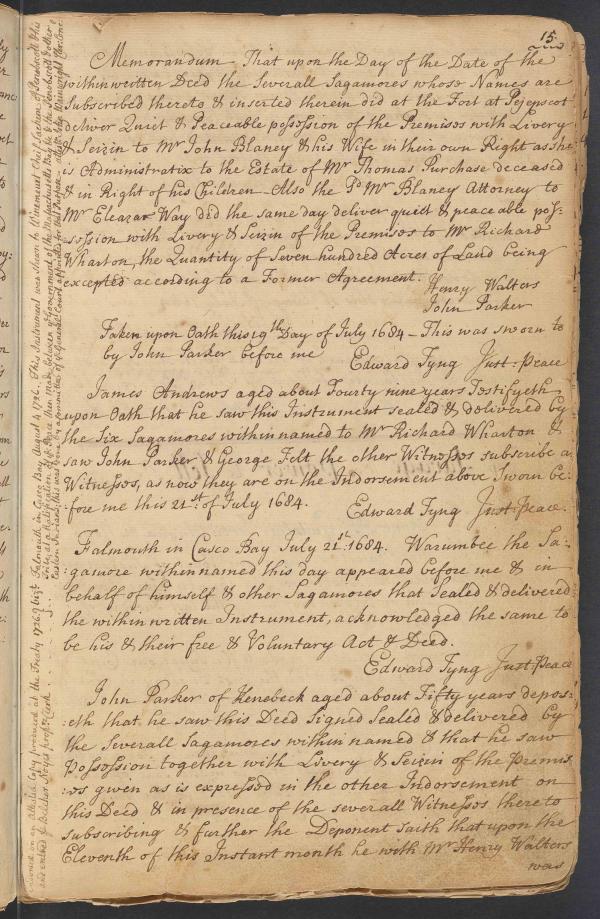 15.
Memorandum That upon the Day of the Date of the
withinwritten Deed the Severall Sagamores whose Names are
Subscribed thereto & inserted therein did at the Fort at Pejepscot
deliver Quiet & Peaceable possession of the Premisos with Livery
& Seizin to Mr John Blaney & his Wife in their own Right as she
is Administratix to the Estate of Mr Thomas Purchase deceased
& in Right of his Children - Also the sd Mr Blaney Attorney to
Mr Eleazar Way did the same day deliver quiet & peaceable pos=
session with Livery & Seizin of the Premisos to Mr Richard
Wharton, the Quantity of Seven hundred Acres of Land being
excepted according to a Former Agreement.
Henry Walters
John Parker
Taken upon Oath this 19th Day of July 1684 - This was sworn to
by John Parker before me Edward Tyng Just: Peace
James Andrews aged about Fourty nine years Testifyeth
upon Oath that he saw this Instrument sealed & delivered by
the Six Sagamores within named to Mr Richard Wharton &
saw John Parker & George Felt the other Witnosses subscribe as
Witnosses, as now they are on the Indorsement above Sworn be=
fore me this 21st of July 1684. Edward Tyng Just: Peace.
Falmouth in Casco Bay July 21st: 1684. Warumbee the Sa=
:gamore within named this day appeared before me & in
behalf of himself & other Sagamores that Sealed & delivered
the within written Instrument, acknowledged the same to
be his & their free & Voluntary Act & Deed.
Edward Tyng Just: Peace
John Parker of Kenebeck aged about Fifty years depos=
:eth that he saw this Deed Signed Sealed & delivered by
the Severall Sagamores within named & that he saw
Possossion together with Livery & Seizin of the Premis=
:os given as is expressed in the other Indorsement on
this Deed & in presence of the severall Witnosses thereto
subscribing & further the Deponent saith that upon the
Eleventh of this Instant month he with Mr Henry Walters
was
Falmouth in Casco Bay August 1726. This Instrument was shown to